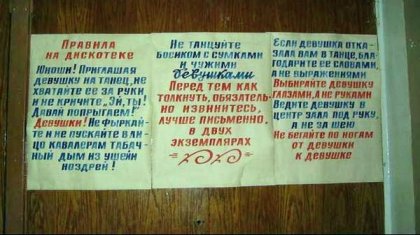 Правила
на дискотеке
Юноши! Приглашая
девушку на танец, не
хватайте ее за руки
и не кричите „Эй, ты!
Давай попрыгаем!"
Девушки! Не фыркай-
те и не пускайте в ли-
цо кавалерам табач-
ный дым из ушей и
ноздрей!
Не танцуйте
босиком с сумками
и чужими
девушками
Перед тем как
толкнуть, обязатель-
но извинитесь,
лучше письменно,
в двух
экземплярах
Если девушка отка-
зала вам в танце, бла-
годарите ее словами,
а не выражениями
Выбирайте девушку
глазами, а не руками.
Ведите девушку в
центр зала под руку,
а не за шею
Не бегайте по ногам
от девушки
к девушке